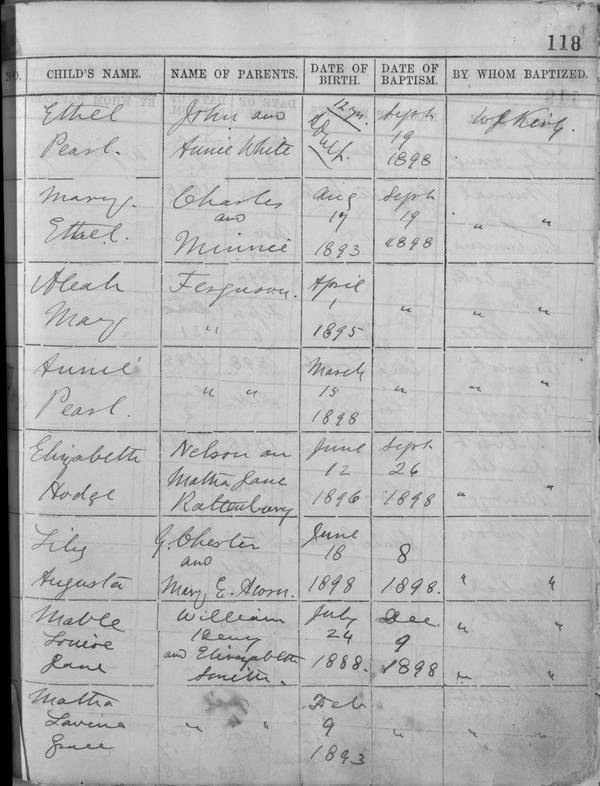 118
NO. CHILD'S NAME. NAME OF PARENTS. DATE OF BIRTH. DATE OF BAPTISM. BY WHOM BAPTIZED.
Ethel John and 12 yrs. Sept W J King.
Pearl. Annie White 19
1898
Mary Charles Aug Sept
and 17 19 " "
Ethel. Minnie 1893 1898
Aleah Ferguson. April
1 " " "
Mary " 1895
Annie March
" " 15 " " "
Pearl. 1898
Elizabeth Nelson an June Sept
Matha Jane 12 26
Hodge Rattenbury 1896 1898 " "
Lily G. Chester June
and 18 8
Augusta Mary E. Acorn. 1898 1898. " "
Mable William July Dec.
Louise Henry 24 9 " "
Jane and Elizabeth 1888. 1898 " "
Smith.
Matha Feb
Lavina " " " 9 " " "
Grace 1893